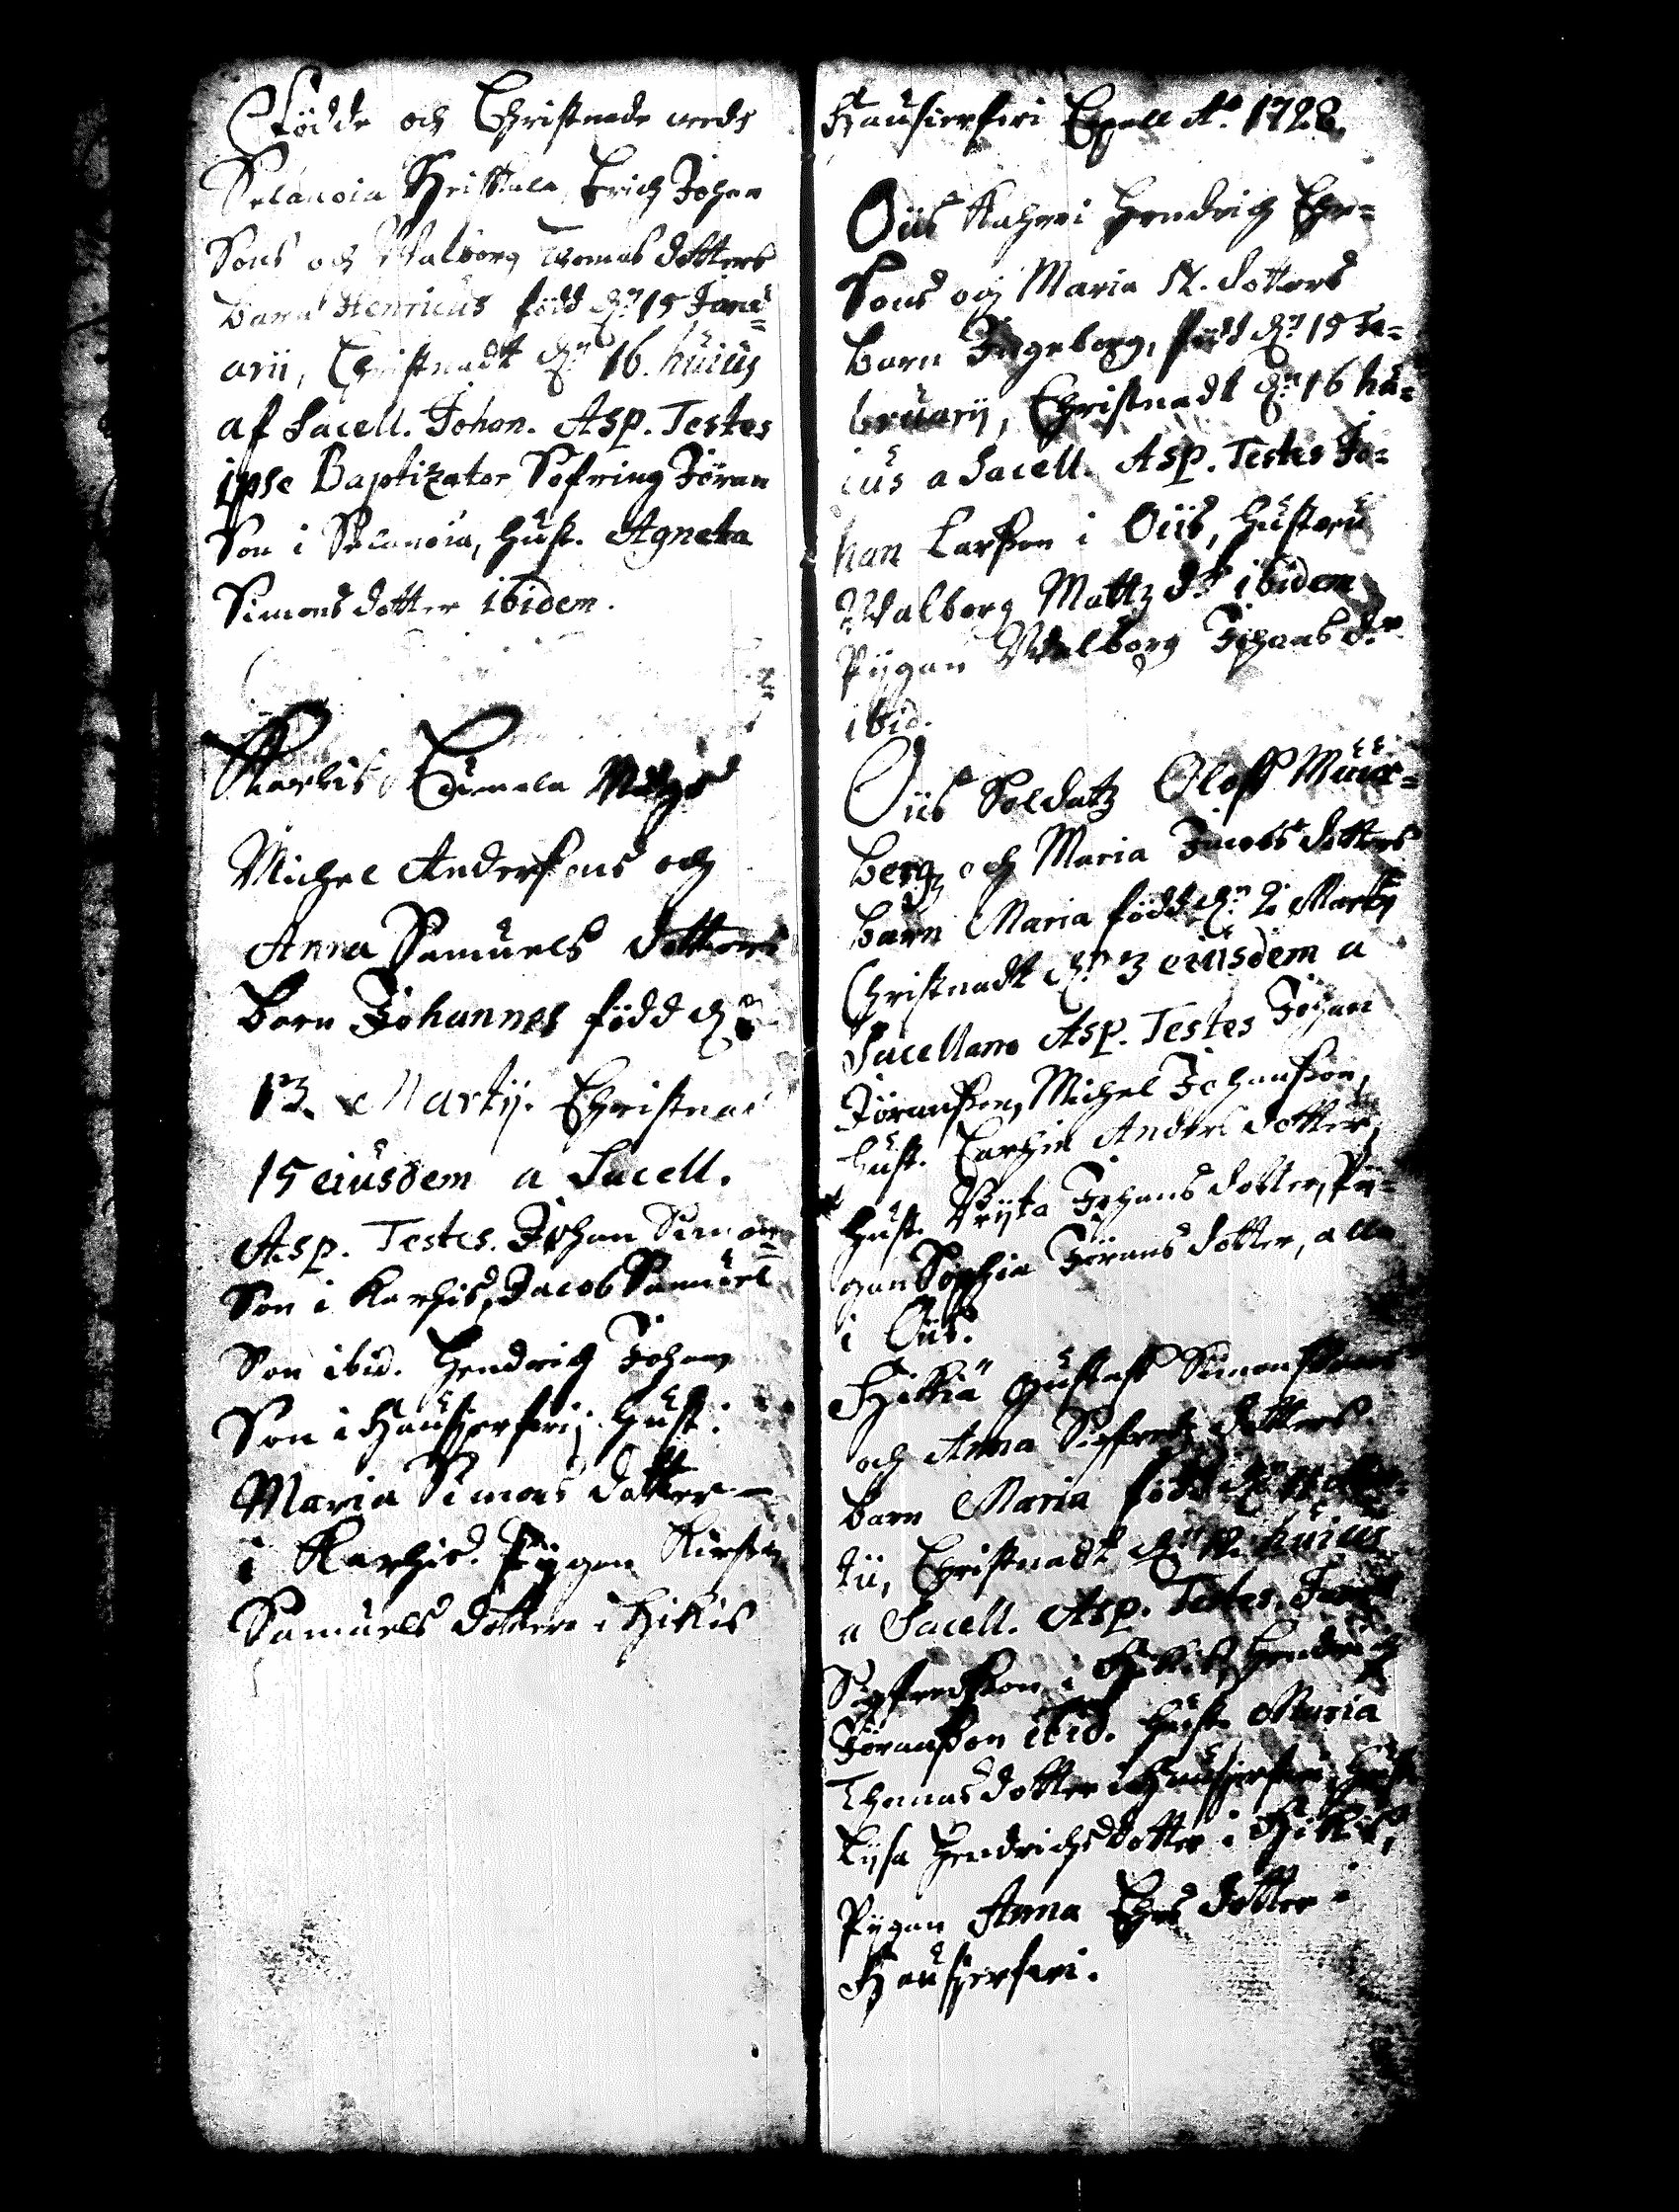 Födde och Christnade weds
Selänoia Heikkala Erich Johan
Sons och Walborg Tomas dotters
barn Henricus född dn 15 Janu=
arii, Christnadt dn 16. huius
af Sacell. Johan. Asp. Testes
ipse Baptizator Sefring Jöran
Son i Selänoia, hust. Agneta
Simons dotter ibidem.
Karhis
Michel Andersons och
Anna Samuels dotters
barn Johannes född dn
13. Martij. Christnad
15 eiusdem a Sacell.
Asp. Testes. Johan Simon=
Son i Karhis, Jacob Samuel
Son ibid. Hendrich Johan
Son i Hausjerferij hust:
Maria Simons dotter
i Karhis. Pygan Kirstin
Samuels dotter i Hikis
Hausierferi Capell Ao. 1728.
Oiis Kahri Hendrich Ers=
Sons och Maria N. dotters
barn Ingeborg, född dn 15 Fe=
bruarij, Christnadt dn 16 hu=
ius a Sacell. Asp. Testes Jo=
han Larsson i Oiis, hustru
Walborg Mattz dr ibidem
Pygan Walborg Johans dr
ibid.
Oiis Soldatz Oloff Muur=
berg och Maria Jacobs dotters
barn Maria född dn 2 Martij
Christnadt dn 3 eiusdem a
Sacellano Asp. Testes Johan
Jöransson, Michel Johansson,
hust. Carhin Anders dotter,
hust. Bryta Johans dotter, Py=
gan Sophia Jörans dotter, alla
i Oiis.
Hikiä Gustaff Simonssons
och Anna Sigfredz dotters
barn Maria född dn
tii, Christnadt dn huius
a Sacell. Asp. Testes.
Sigfredsson i Hikis, Hendrich
Jöransson ibid. hust. Maria
Thomas dotter i Hausjerferi, hust
Lisa Hendrichs dotter i Hikis,
Pygan Anna Ers dotter i
Hausjerferi.